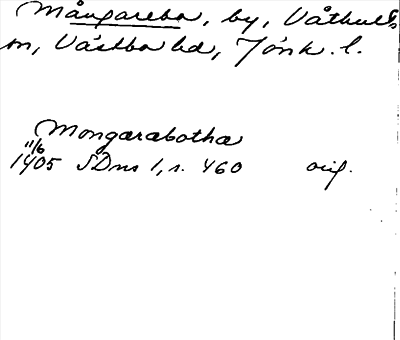 Mångarebo, by, Våthults
sn, Västbo hd, Jönk. l.
Mongarabotha
11/6
1405 SDns 1, s. 460 orig.